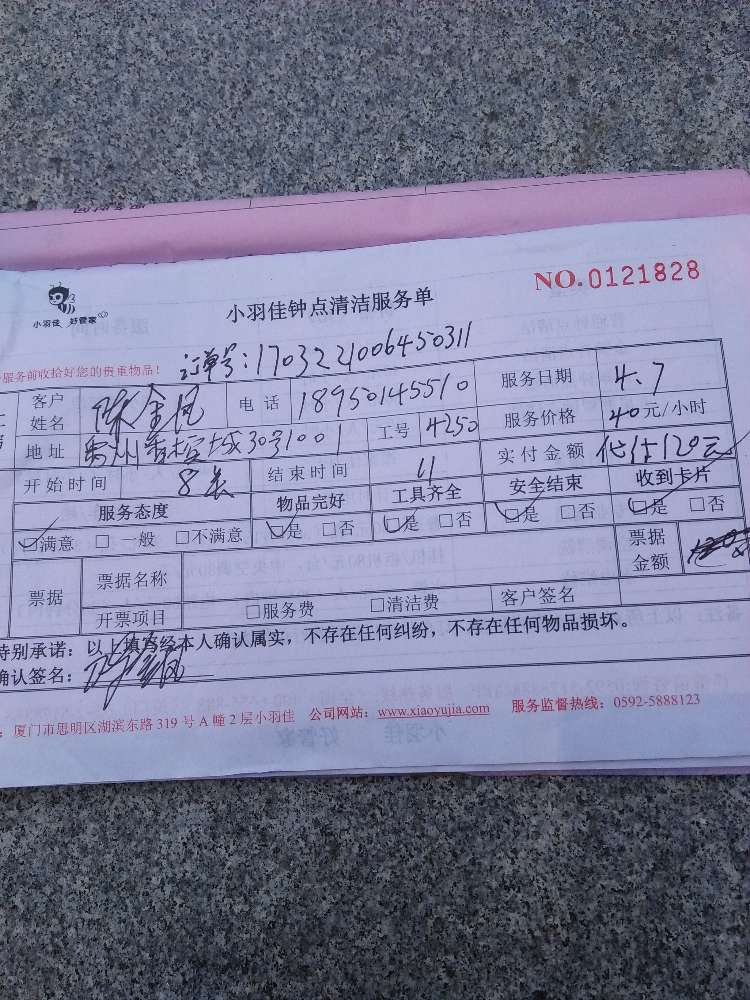 NO.0121828
小羽佳 好管家
小羽佳钟点清洁服务单
服务前收拾好您的贵重物品！ 订单号：1703221006450311
客户姓名 陈金凤 电话 18950145510 服务日期 4.7
地址 3号1001 工号 4250 服务价格 40元/小时
开始时间 8 结束时间 11 实付金额 代付120元
服务态度 物品完好 工具齐全 安全结束 收到卡片
☑满意 □一般 □不满意 ☑是 □否 ☑是 □否 ☑是 □否 ☑是 □否
票据 票据名称 票据金额
开票项目 □服务费 □清洁费 客户签名
特别承诺：以上填写经本人确认属实，不存在任何纠纷，不存在任何物品损坏。
确认签名：
：厦门市思明区湖滨东路 319 号 A 幢 2 层小羽佳 公司网站：www.xiaoyujia.com 服务监督热线：0592-5888123